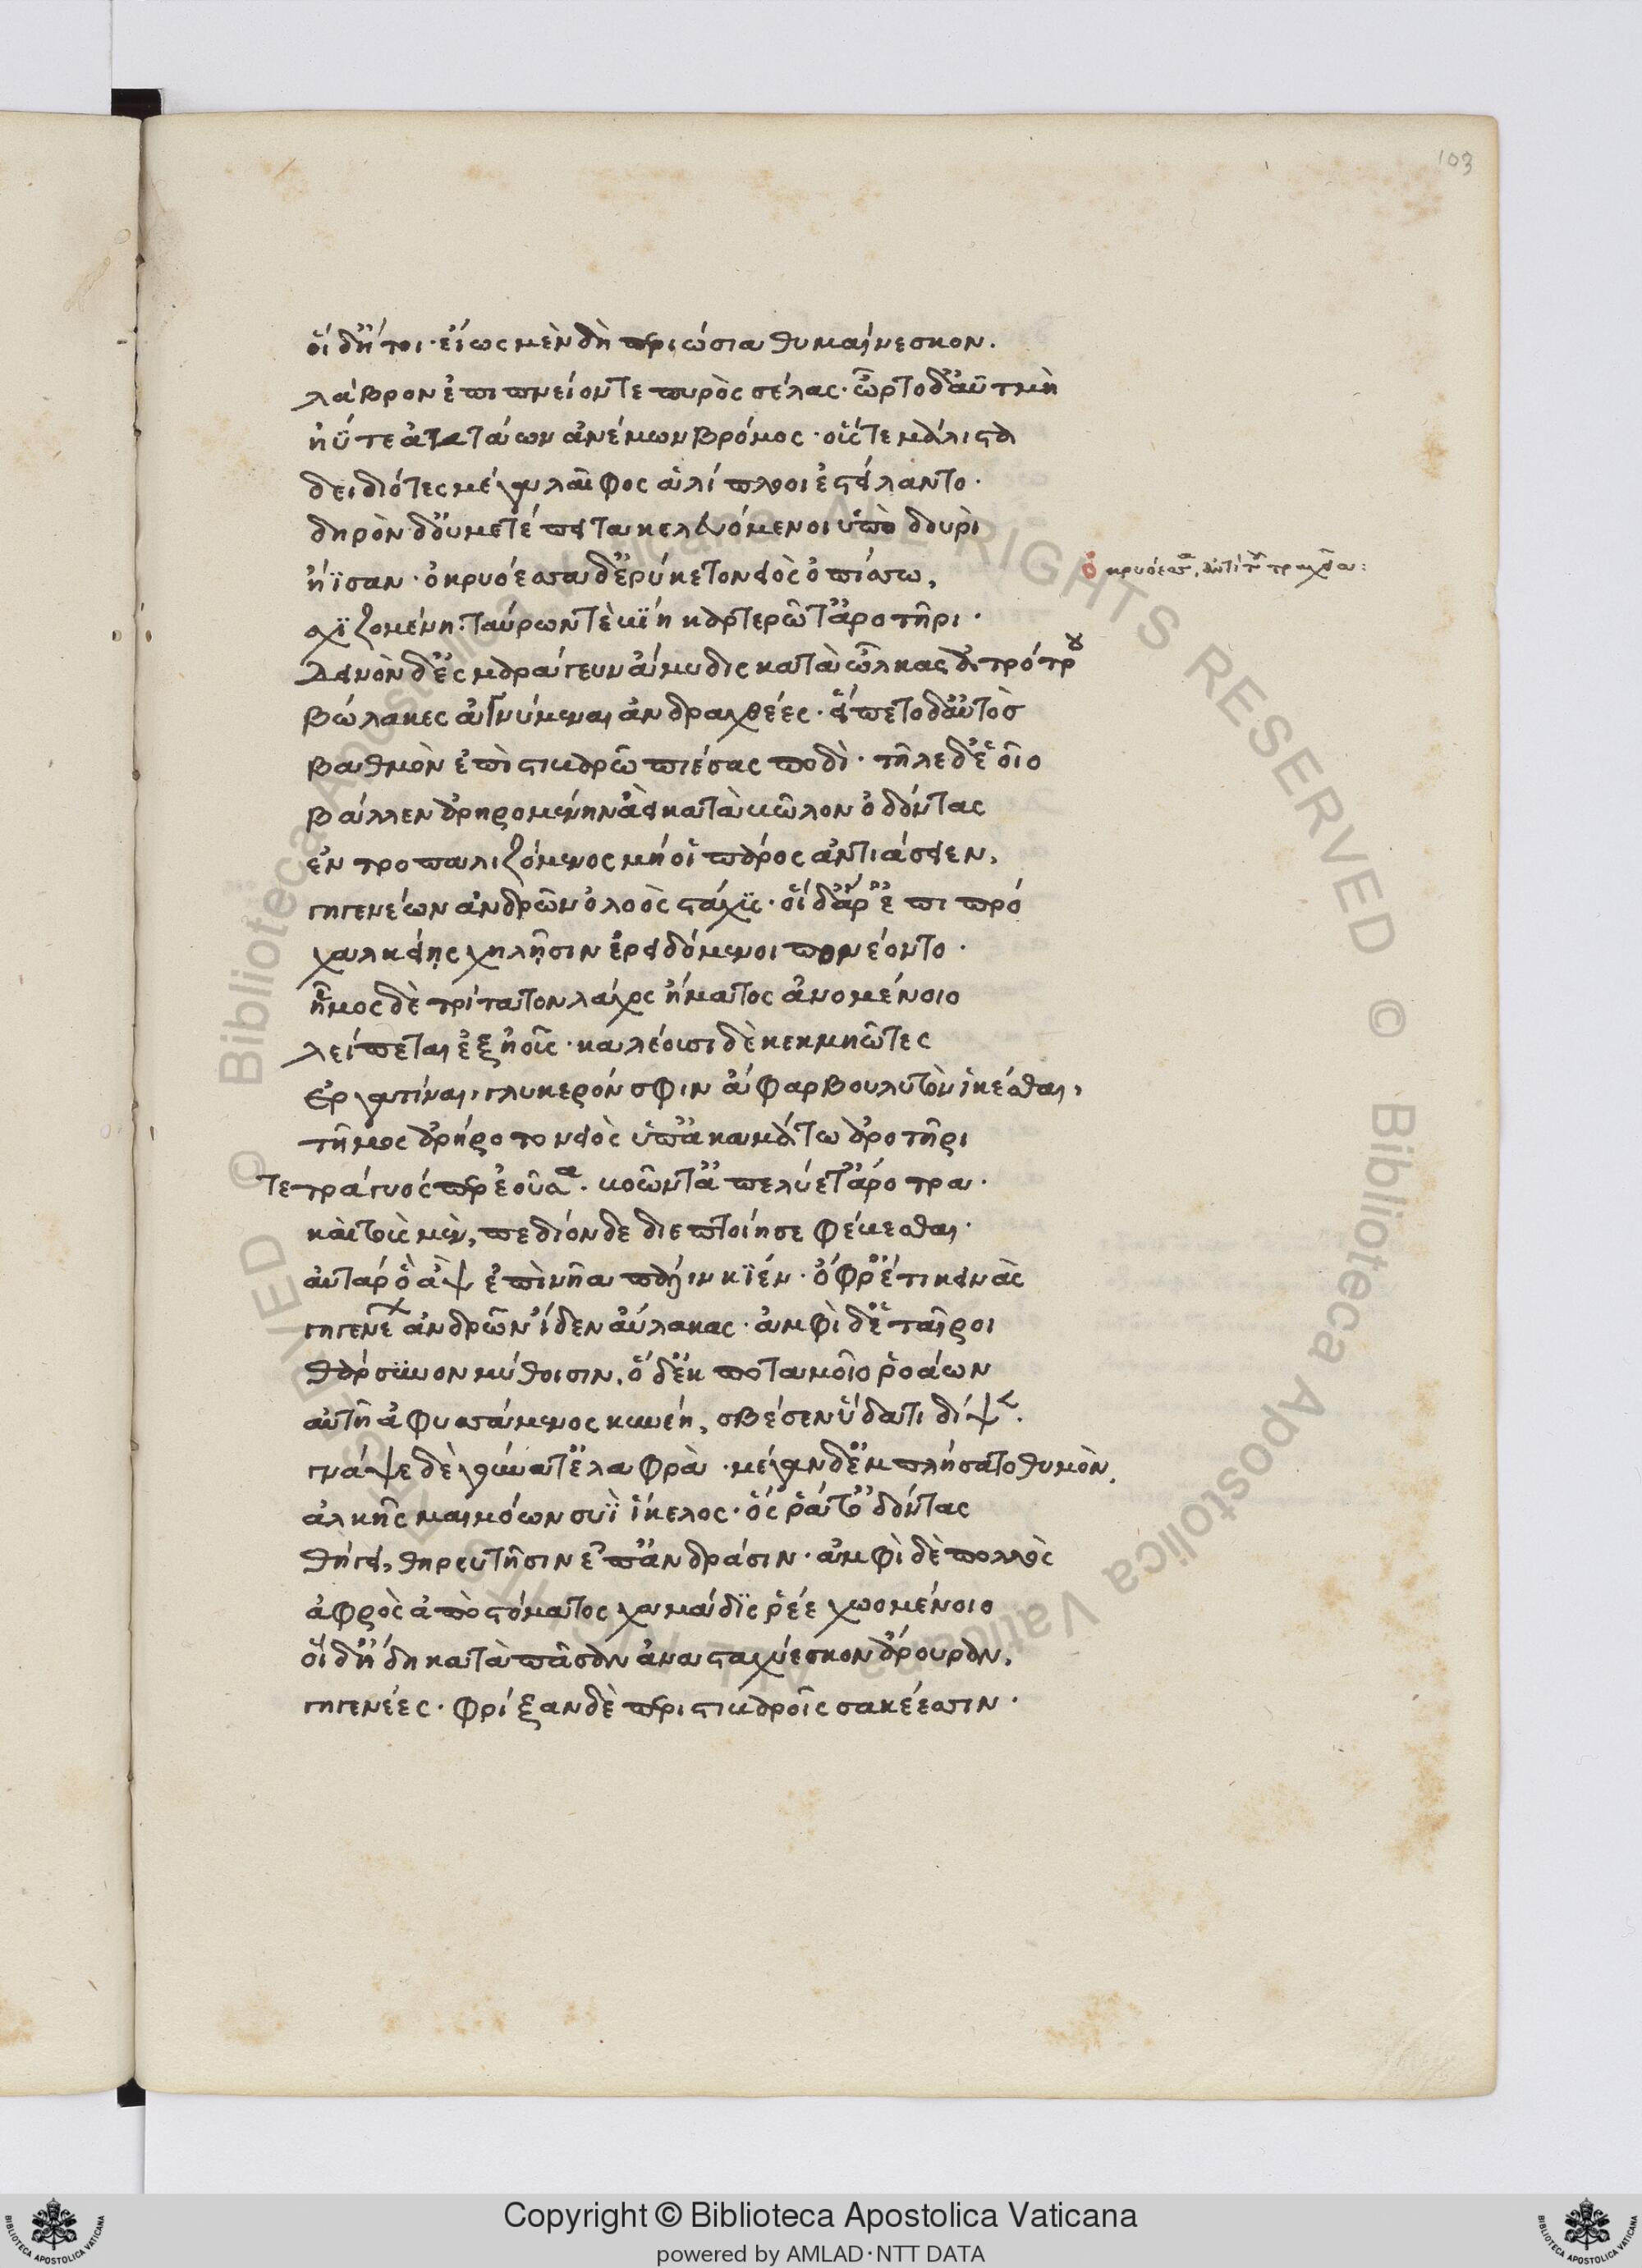 103
οἱ δ' ἤτοι· εἵως μὲν δὴ περιώσια θυμαίνεσκον.
λάβρον ἐπιπνείοντε πυρὸς σέλας· ὦρτο δ' ἀϋτμὴ
ἠΰτε ἀταταάων ἀνέμων βρόμος· οὕς τε μάλιστα
δειδιότες μέγα λαῖφος ἁλίπλοοι ἐστείλαντο·
δηρὸν δ' οὐ μετέπειτα κελευόμενοι ὑπὸ δουρὶ
ἤϊσαν· ὀκρυόεσσα δ' ἐρύκετο νειὸς ὀπίσσω,
ὀκρυόεσσα, ἀντὶ τοῦ τραχεῖα:
σχιζομένη· ταύρων τὲ βίῃ κρατερῷ τ' ἀροτῆρι·
δεινὸν δ' ἐσμαράγευν ἄμυδις κατὰ ὦλκας ἀρότρου
βώλακες ἀγνύμεναι ἀνδραχθέες· εἵπετο δ' αὐτὸσ
βαθμὸν ἐπὶ στιβαρῷ πιέσας ποδὶ· τῆλε δ' ἑοῖο
βάλλεν ἀρηρομένην ἀεὶ κατὰ βῶλον ὀδόντας
ἐντροπαλιζόμενος μή οἱ πάρος ἀντιάσειεν,
γηγενέων ἀνδρῶν ὀλοὸς στάχυς· οἱ δ' ἄρ' ἐπιπρό
χαλκείῃς χηλῇσιν ἐρειδόμενοι πονέοντο·
ἦμος δὲ τρίτατον λάχος ἤματος ἀνομένοιο
λείπεται ἐξ ἠοῦς· καλέουσι δὲ κεκμηῶτες
ἐργατίναι, γλυκερόν σφιν ἄφαρ βουλυτὸν ἱκέσθαι,
τῆμος ἀρήροτο νειὸς ὑπ' ἀκαμάτω ἀροτῆρι
τετράγυός περ ἐοῦσα· βοῶν τ' ἀπελύετ' ἄροτρα·
καὶ τοὺς μὲν, πεδίονδε διεπτοίησε φέβεσθαι·
αὐτὰρ ὁ ἂψ ἐπὶ νῆα πάλιν κίεν· ὄφρ' ἔτι κεινὰς
γηγενέων ἀνδρῶν ἴδεν αὔλακας· ἀμφὶ δ' ἑταῖροι
θάρσυνον μύθοισιν. ὁ δ' ἐκ ποταμοῖο ῥοάων
αὐτῇ ἀφυσσάμενος κυνέη, σβέσεν ὕδατι δίψαν.
γνάψε δὲ γούνατ' ἐλαφρὰ· μέγαν δ' ἐμπλήσατο θυμὸν,
ἀλκῆς μαιμόων συῒ ἴκελος· ὅς ῥά τ' ὀδόντας
θήγει, θηρευτῇσιν ἐπ' ἀνδράσιν· ἀμφὶ δὲ πολλὸς
ἀφρὸς ἀπὸ στόματος χαμάδις ῥέε χωομένοιο
οἱ δ' ἤδη κατὰ πᾶσαν ἀνασταχύεσκον ἄρουραν,
γηγενέες· φρίξαν δὲ περὶ στιβαροῖς σακέεσσιν·
© Biblioteca Apostolica Vaticana ALL RIGHTS RESERVED © Biblioteca Apostolica Vaticana ALL RIGHTS RESERVED
Copyright © Biblioteca Apostolica Vaticana
powered by AMLAD·NTT DATA